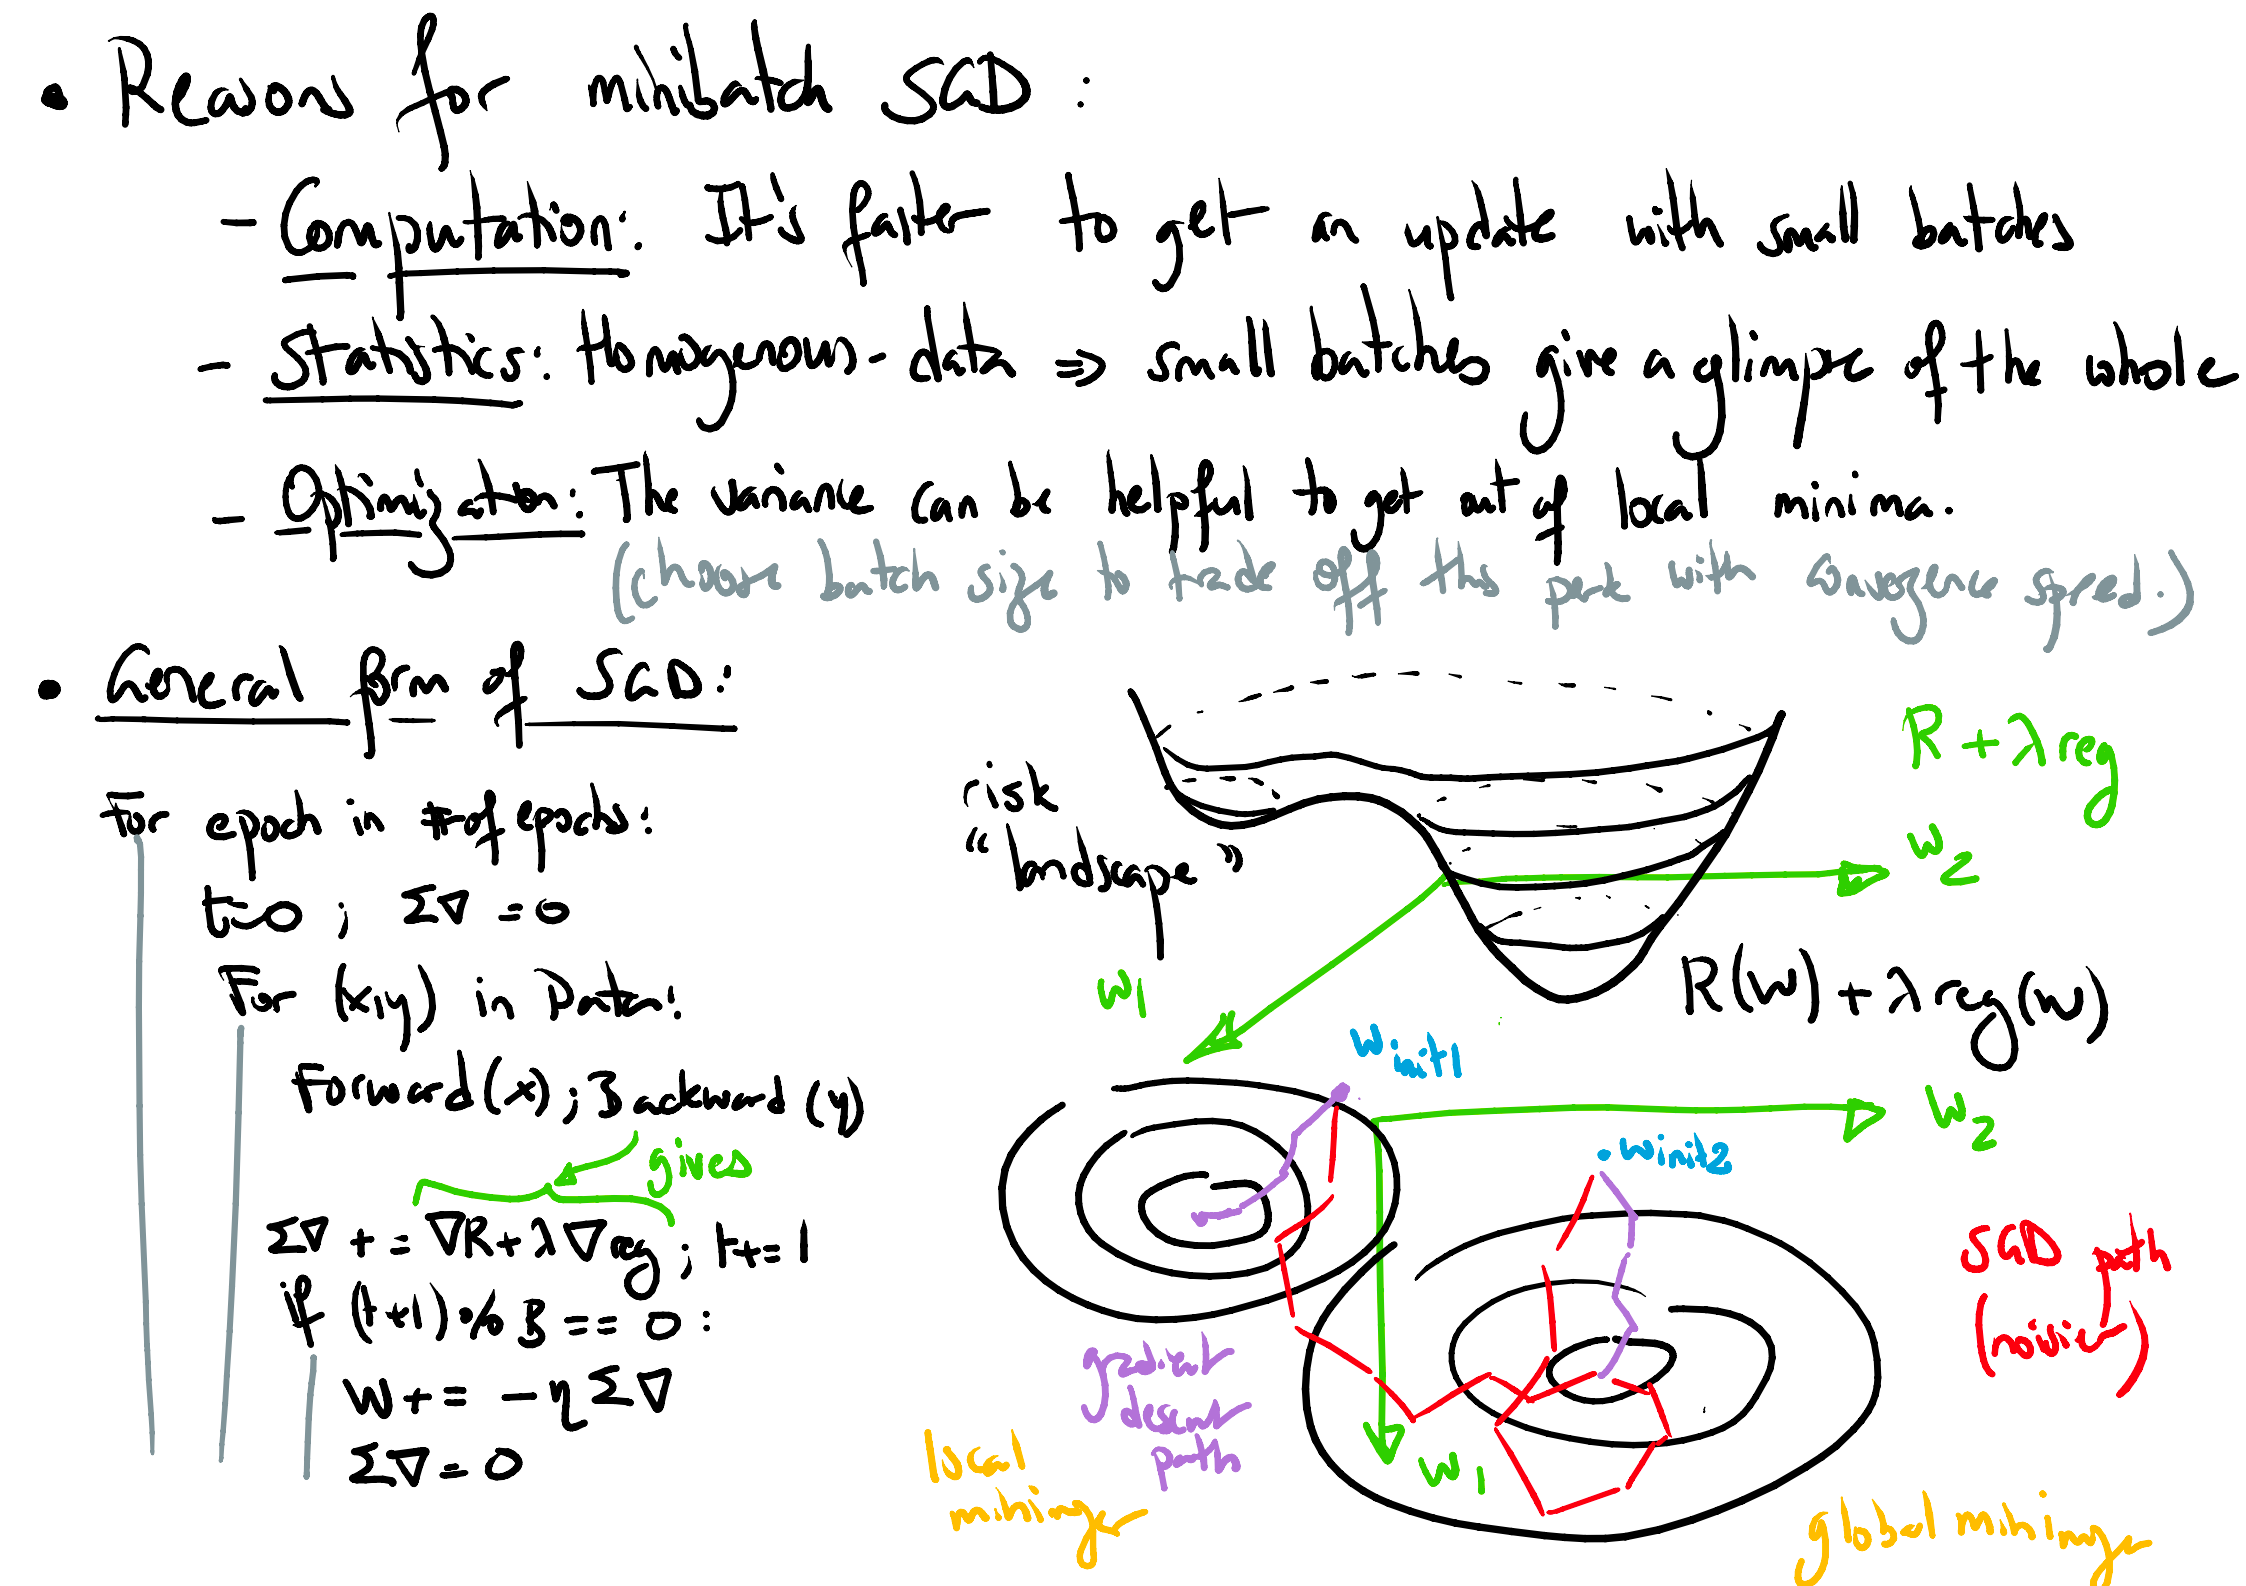 • Reasons for minibatch SGD :
- Computation: It's faster to get an update with small batches
- Statistics: Homogenous-data ⇒ small batches give a glimpse of the whole
- Optimization: The variance can be helpful to get out of local minima.
(choose batch size to trade off this perk with convergence speed.)
• General form of SGD:
For epoch in # of epochs:
t=0 ; Σ∇ = 0
For (x,y) in Data:
Forward(x) ; Backward (y)
gives
Σ∇ += ∇R + λ∇reg ; t+=1
if (t+1) % B == 0 :
W += - η Σ∇
Σ∇ = 0
risk
"landscape"
R + λ reg
w2
w1
R(w) + λ reg(w)
winit1
w2
winit2
SGD path
(noisier)
gradient
descent
path
w1
local
minimizer
global minimizer